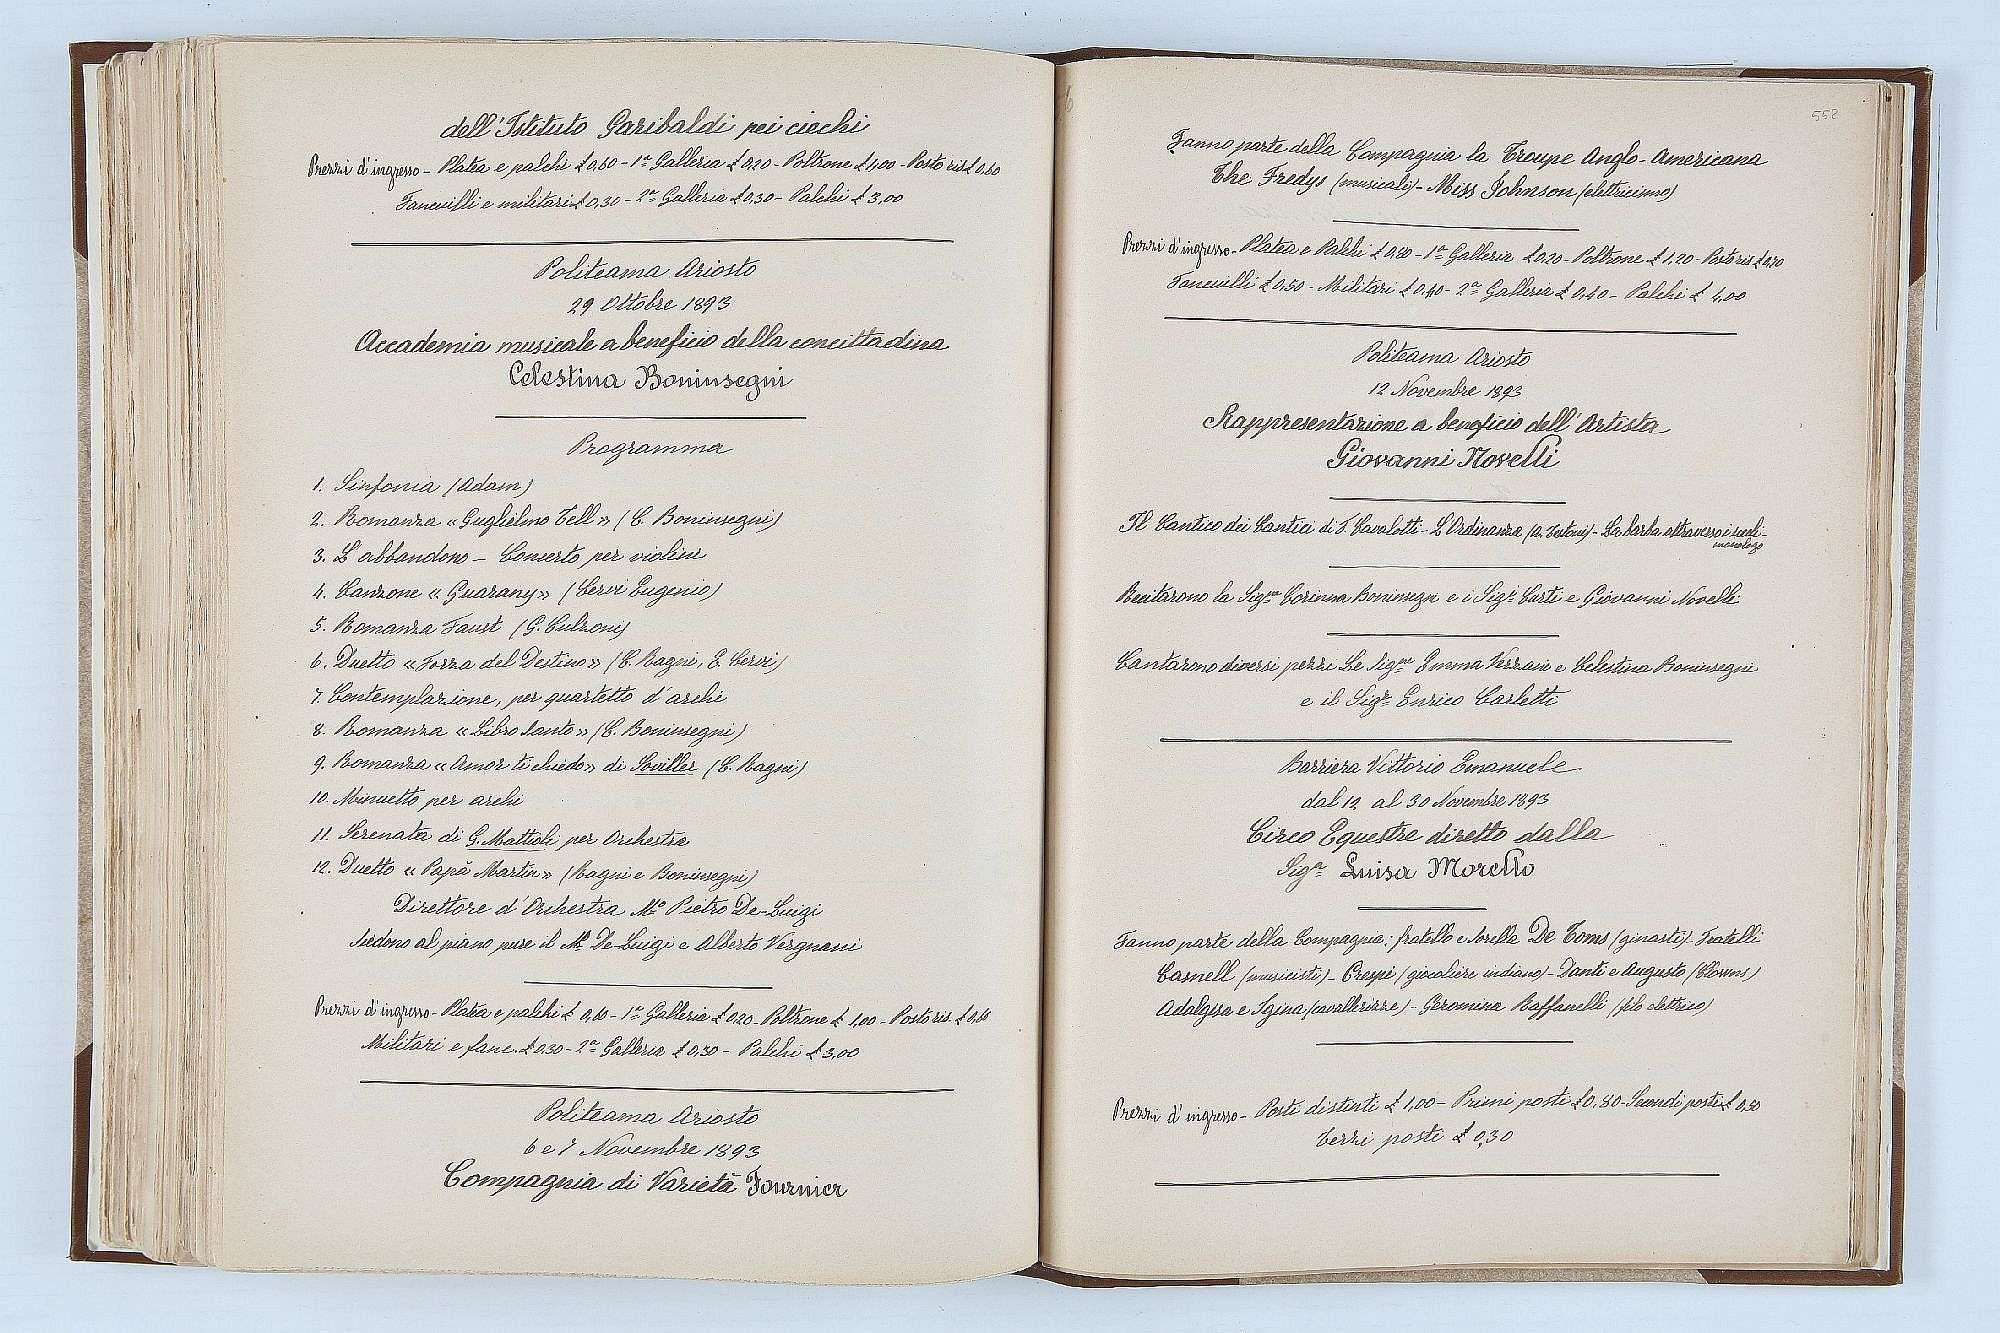 dell'Istituto Garibaldi pei ciechi
Prezzi d'ingresso - Platea e palchi £ 0,60 - 1ª Galleria £ 0,20 - Poltrone £ 1,00 - Posto ris. £ 0,60
Fanciulli e militari £ 0,30 - 2ª Galleria £ 0,30 - Palchi £ 3,00
Politeama Ariosto
29 Ottobre 1893
Accademia musicale a beneficio della concittadina
Celestina Boninsegni
Programma
1. Sinfonia (Adam)
2. Romanza «Guglielmo Tell» (C. Boninsegni)
3. L'abbandono - Concerto per violini
4. Canzone «Guarany» (Cervi Eugenio)
5. Romanza Faust (G. Culzoni)
6. Duetto «Forza del Destino» (C. Ragni, E. Cervi)
7. Contemplazione, per quartetto d'archi
8. Romanza «Libro Santo» (C. Boninsegni)
9. Romanza «Amor ti chiedo» di (C. Ragni)
10. Minuetto per archi
11. Serenata di G. Mattioli per Orchestra
12. Duetto «Papà Martin» (Ragni e Boninsegni)
Direttore d'Orchestra Mº Pietro De-Luigi
Siedono al piano pure il Mº De Luigi e Alberto Vergnani
Prezzi d'ingresso - Platea e palchi £ 0,60 - 1ª Galleria £ 0,20 - Poltrone £ 1,00 - Posto ris. £ 0,60
Militari e fanc. £ 0,30 - 2ª Galleria £ 0,30 - Palchi £ 3,00
Politeama Ariosto
6 e 7 Novembre 1893
Compagnia di Varietà Fournier
552
Fanno parte della Compagnia la Troupe Anglo-Americana
The Fredys (musicali) - Miss Johnson (elettricismo)
Prezzi d'ingresso - Platea e Palchi £ 0,80 - 1ª Galleria £ 0,20 - Poltrone £ 1,20 - Posto ris. £
Fanciulli £ 0,50 - Militari £ 0,40 - 2ª Galleria £ 0,40 - Palchi £ 4,00
Politeama Ariosto
12 Novembre 1893
Rappresentazione a beneficio dell'Artista
Giovanni Novelli
Il Cantico dei Cantici di F. Cavalotti - L'Ordinanza (A. Testoni) - La barba attraverso i secoli -
monologo
Recitarono la Sigᵐᵃ Corinna Boninsegni e i Sigʳⁱ Curti e Giovanni Novelli
Cantarono diversi pezzi Le Sigⁿᵉ Emma Vezzani e Celestina Boninsegni
e il Sigʳ Enrico Carletti
Barriera Vittorio Emanuele
dal 12 al 30 Novembre 1893
Circo Equestre diretto dalla
Sigʳᵃ Luisa Morello
Fanno parte della Compagnia: fratello e sorella De Toms (ginasti) - Fratelli
Casnell (musicisti) - Crespi (giocoliere indiano) - Danti e Augusto (Clowns)
Adalgisa e Igina (cavallerizze) - Geromina Raffanelli (filo elettrico)
Prezzi d'ingresso - Posti distinti £ 1,00 - Primi posti £ 0,80 - Secondi posti £ 0,50
Terzi posti £ 0,30